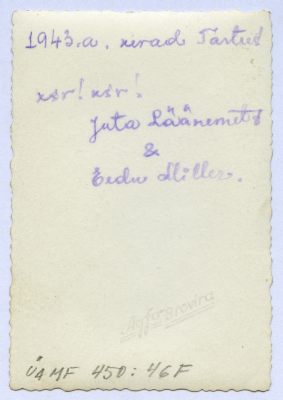 1943.a. xirad Tartus
xsr! xsr!
Juta Läänemets
&
Eedu Miller.
Agfa Brovira
ÜAMF 450:46F